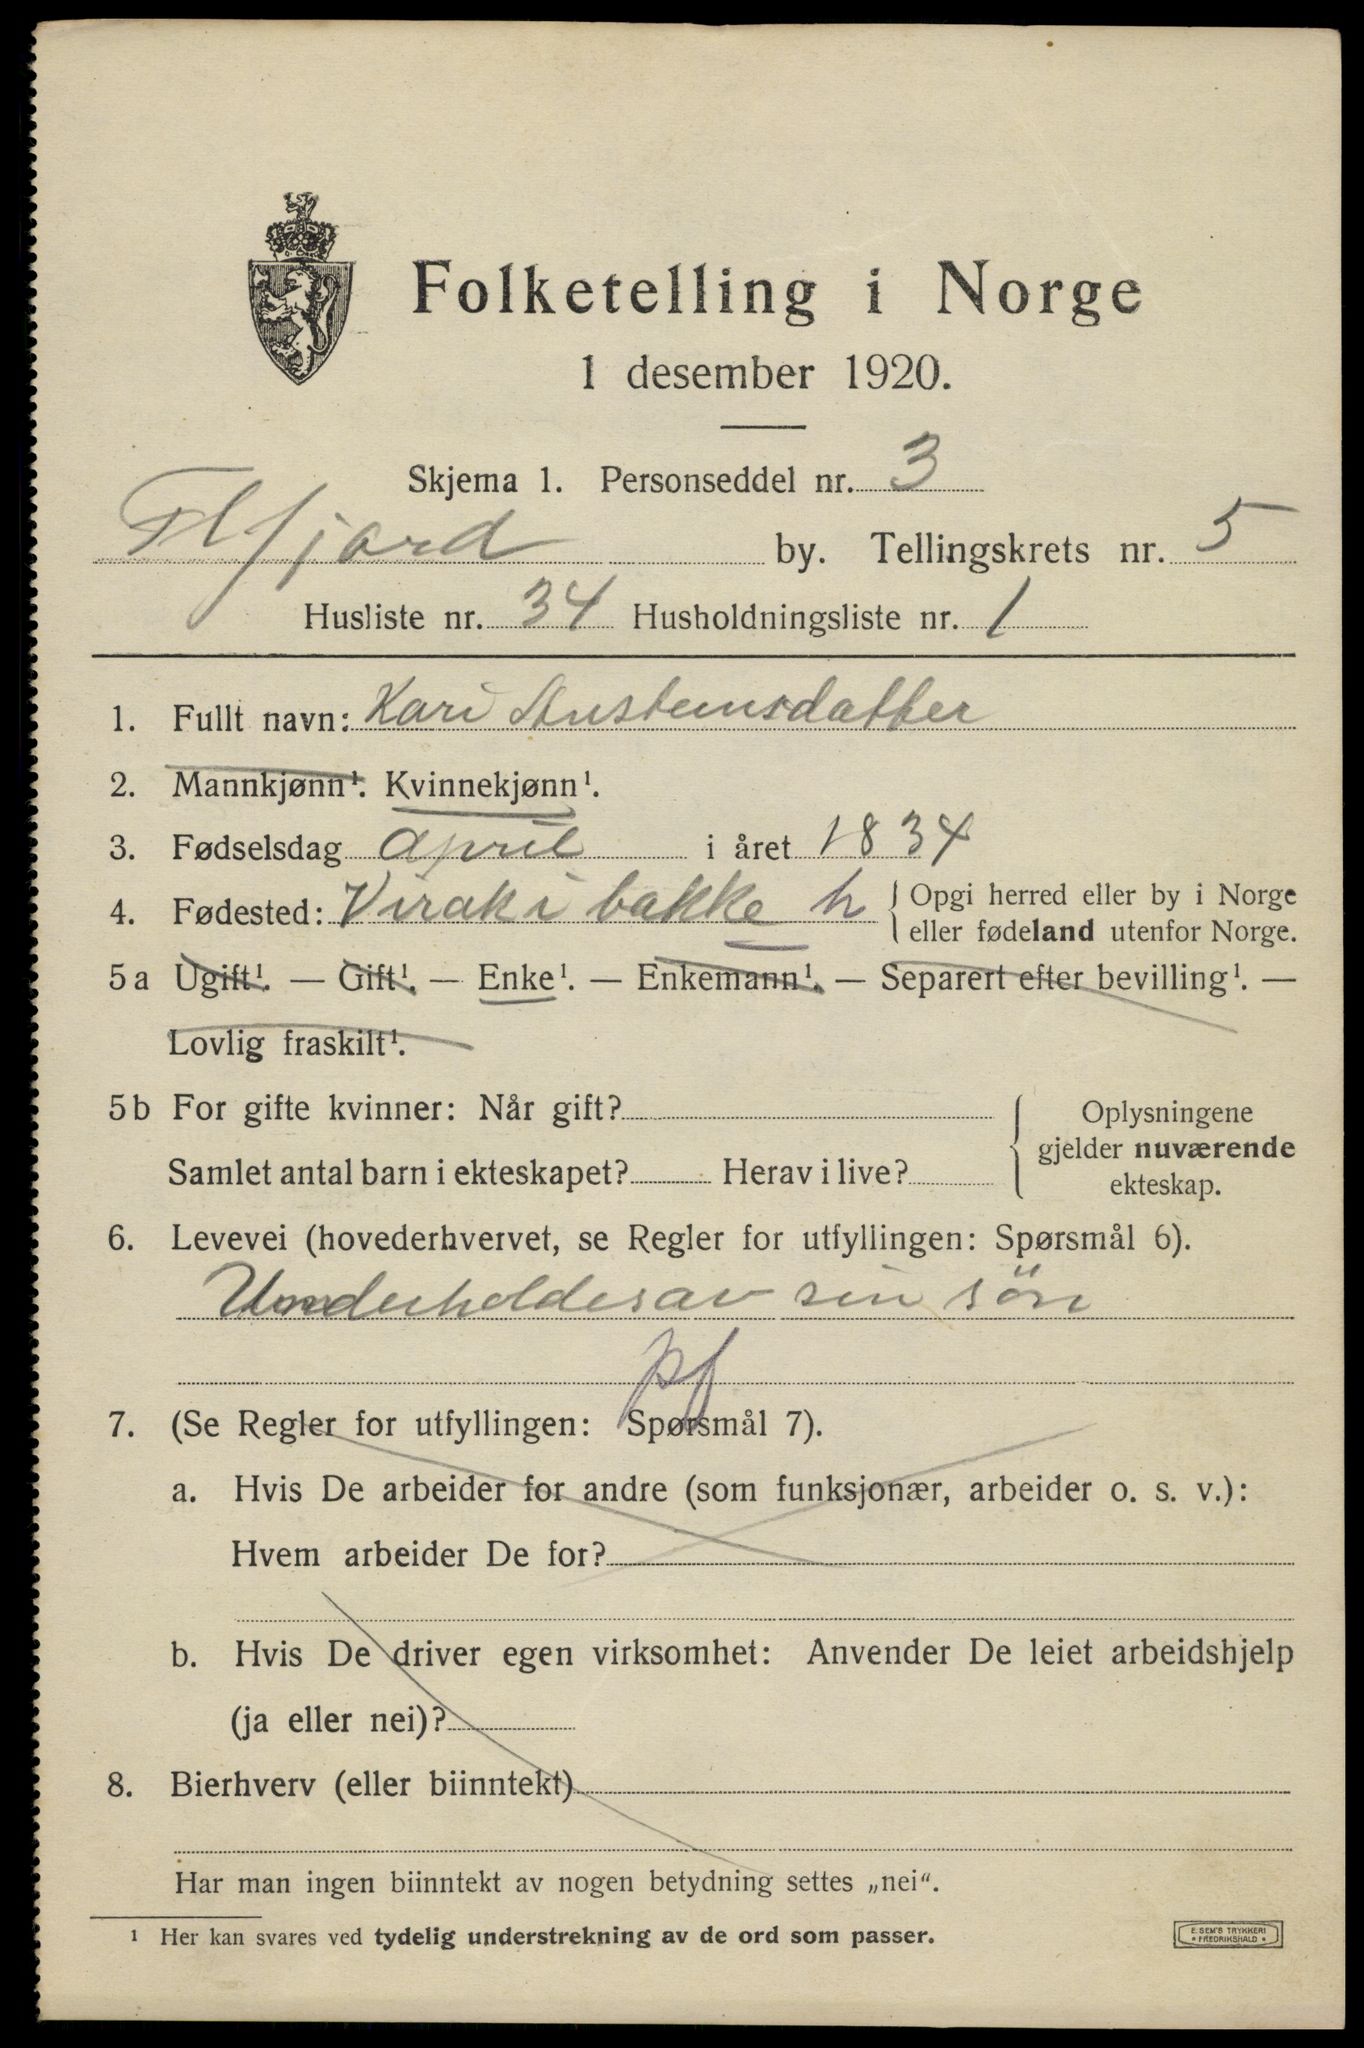 Folketelling i Norge
1 desember 1920.
Skjema 1. Personseddel nr. 3
Flfjord by. Tellingskrets nr. 5
Husliste nr. 34 Husholdningsliste nr. 1
1. Fullt navn: Kari Austensdatter
2. Mannkjønn¹. Kvinnekjønn¹.
3. Fødselsdag april i året 1834
4. Fødested: Virak i bakke h { Opgi herred eller by i Norge
eller fødeland utenfor Norge.
5a Ugift¹. — Gift¹. — Enke¹. — Enkemann¹. — Separert efter bevilling¹. —
Lovlig fraskilt¹.
5b For gifte kvinner: Når gift?
Samlet antal barn i ekteskapet? Herav i live?
Oplysningene
gjelder nuværende
ekteskap.
6. Levevei (hovederhvervet, se Regler for utfyllingen: Spørsmål 6).
Underholdes av sin sön
pf
7. (Se Regler for utfyllingen: Spørsmål 7).
a. Hvis De arbeider for andre (som funksjonær, arbeider o. s. v.):
Hvem arbeider De for?
b. Hvis De driver egen virksomhet: Anvender De leiet arbeidshjelp
(ja eller nei)?
8. Bierhverv (eller biinntekt)
Har man ingen biinntekt av nogen betydning settes „nei“.
¹ Her kan svares ved tydelig understrekning av de ord som passer.
E. SEM'S TRYKKERI
* FREDRIKSHALD *